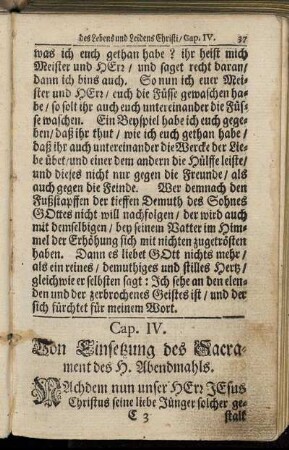 des Lebens und Leidens Christi / Cap. IV. 37
was ich euch gethan habe? ihr heist mich
Meister und HErr / und saget recht daran /
dann ich bins auch. So nun ich euer Mei-
ster und HErr / euch die Füsse gewaschen ha-
be / so solt ihr auch euch untereinander die Füs-
se waschen. Ein Beyspiel habe ich euch gege-
ben / daß ihr thut / wie ich euch gethan habe /
daß ihr auch untereinander die Wercke der Lie-
be übet / und einer dem andern die Hülffe leiste /
und dieses nicht nur gegen die Freunde / als
auch gegen die Feinde. Wer demnach den
Fußstapffen der tieffen Demuth des Sohnes
GOttes nicht will nachfolgen / der wird auch
mit demselbigen / bey seinem Vatter im Him-
mel der Erhöhung sich mit nichten zugetrösten
haben. Dann es liebet GOtt nichts mehr /
als ein reines / demuthiges und stilles Hertz /
gleichwie er selbsten sagt: Ich sehe an den elen-
den und der zerbrochenes Geistes ist / und der
sich fürchtet für meinem Wort.
Cap. IV.
Von Einsetzung des Sacra-
ment des H. Abendmahls.
NAchdem nun unser HErr JEsus
Christus seine liebe Jünger solcher ge-
C 3 stalt